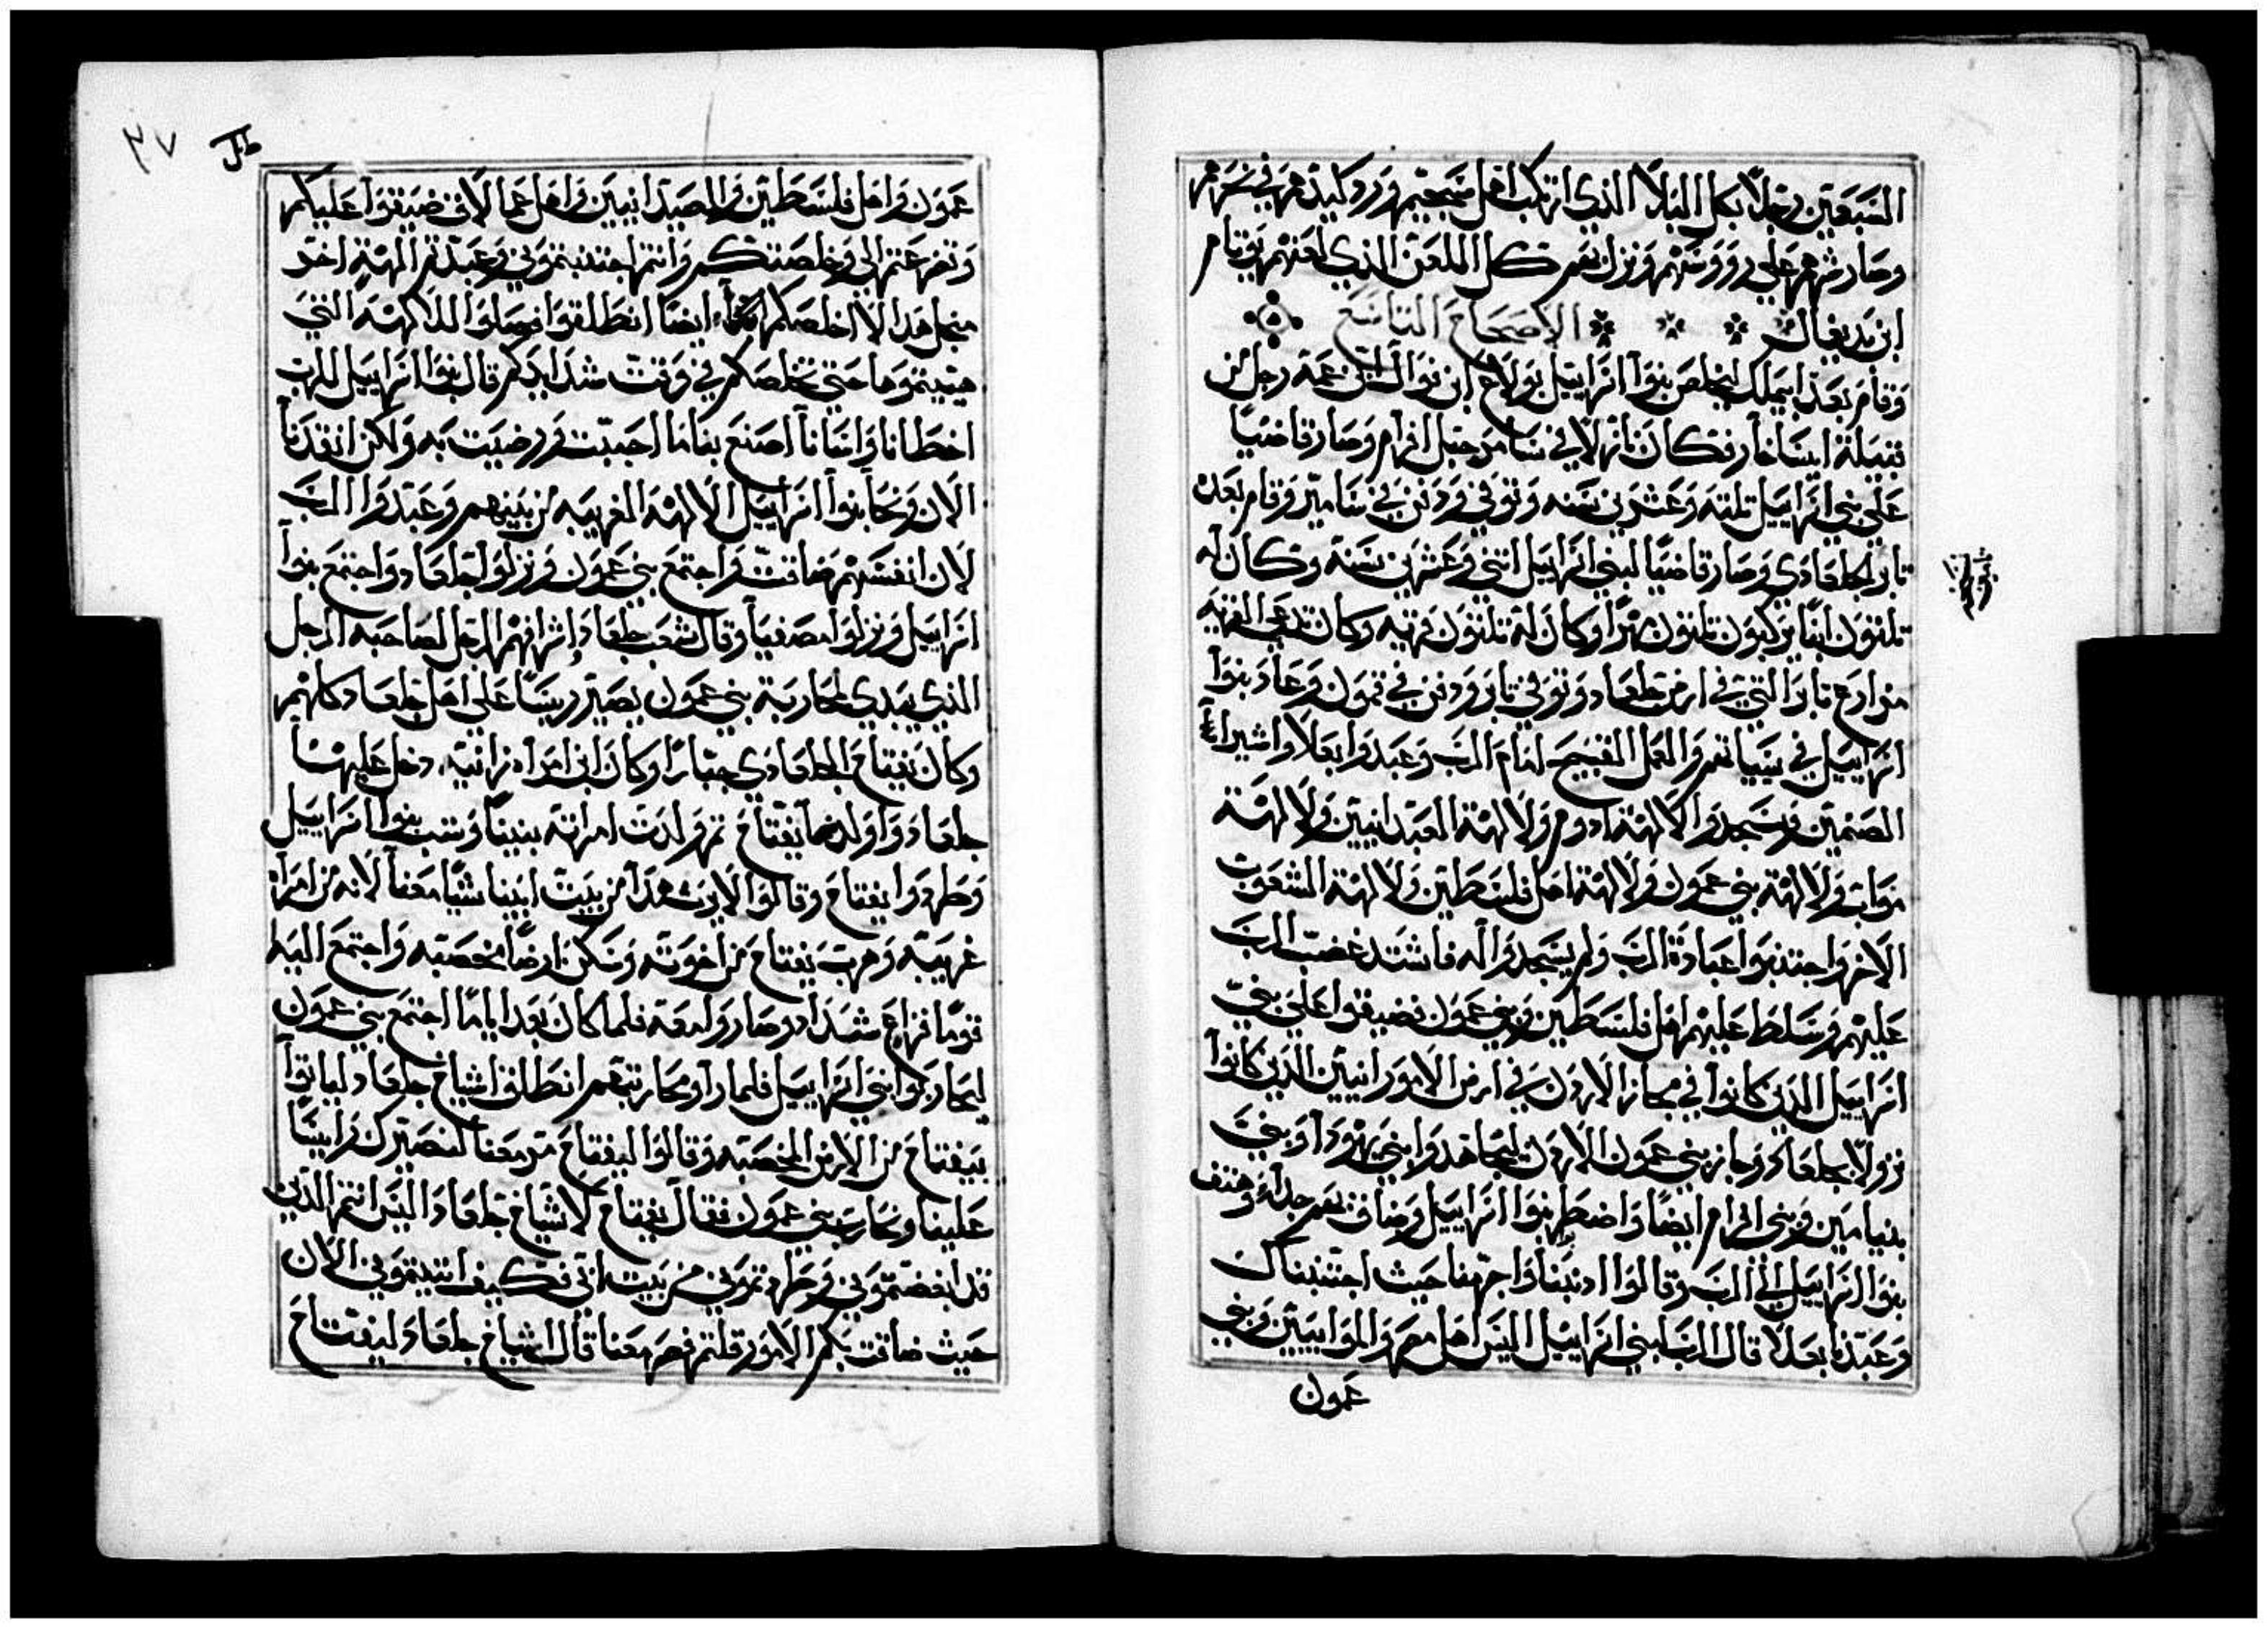 السبعين رجلًا بكل البلاء الذي ارتكب اهل سجيم ورد كيدهم في نحرهم
وصار شرهم علي رووسهم ونزل بهم كل اللعن الذي لعنهم يوتام
ابن يدبعال الاصحاح التاسع
وقام بعد ابيملك ليخلص بنوا اسراييل تولاح ابن نوال ابن عمه رجل من
قبيلة ايساخار فكان نازلًا في سامر جبل افرام وصار قاضيًا
علي بني اسراييل تلته وعشرين سنه وتوفي ودفن في سامير وقام بعده
تاير الجلعادي وصار قاضيًا لبني اسراييل اتنى وعشرين سنة وكان له
تلتون ابنًا يركبون تلتون مهرًا وكان له تلتون قريه وكان تدعي القريه
مزارع تاير التي في ارض جلعاد وتوفي تاير ودفن في تمون وعاد بنوا
اسراييل في سيياتهم والعمل القبيح امام الرب وعبدوا بعلا واشيرا
الصنمين وسجدوا لالهة ادوم ولالهة العبدانيين ولالهة
مواب ولالهة بني عمون ولالهة اهل فلسطين ولالهة الشعوب
الاخر واجتنبوا عبادة الرب ولم يسجدوا له فاشتد غضب الرب
عليهم وسلط عليهم اهل فلسطين وبني عمون فضيقوا علي بني
اسراييل الدين كانوا في مجاز الاردن في ارض الامورانيين الدين كانوا
نزولا بجلعاد وجاز بني عمون الاردن ليجاهدوا بني يهودا وبيت
بنيامين وبني افرام ايضًا واضطر بنوا اسراييل وضاق بهم جداء وهتف
بنوا اسراييل الي الرب وقالوا ادنبنا واجرمنا حيث اجتنبناك
وعبدنا بعلا قال الرب لبني اسراييل اليس اهل مصر والموابيين وبني
عمون
٣٧
عمون واهل فلسطين والصيدانيين واهل عمالاق ضيقوا عليكم
وتضرعتم الي وخلصتكم وانتم اجتنبتموني وعبدتم الهة اخر
منجل هدا لا اخلصكم ايضًا انطلقوا وصلوا للالهة التي
هييتموها حتي تخلصكم في وقت شدايدكم قال بنوا اسراييل للرب
اخطانا واسانا اصنع بنا ما احببت ورضيت به ولكن انقدنا
الان ونحا بنوا اسراييل الالهة الغريبه من بينهم وعبدوا الرب
لان انفسهم ضاقت واجتمع بني عمون ونزلوا بجلعاد واجتمع بنوا
اسراييل ونزلوا مصفيا وقال شعب جلعاد واشرافهم الرجل لصاحبه الرجل
الذي يبدي لمحاربة بني عمون يصير رييسًا علي اهل جلعاد كلهم
وكان يفتاح الجلعادي جبارًا وكان ابن امراه زانيه دخل عليها
جلعاد واولدها يفتاح تم ولدت امراته بنينًا وشب بنوا اسراييل
وطردوا يفتاح وقالوا لا يرث هدا من بيت ابينا شيًا معنا لانه من امراه
غريبه وهرب يفتاح من اخوته وسكن ارضًا مخصبه واجتمع اليه
قومًا فراع شداد وصاروا معه فلما كان بعد ايامًا اجتمع بني عمون
ليحاربوا بني اسراييل فلما راو محاربتهم انطلق اشياخ جلعاد لياتوا
بيفتاح من الارض المخصبه وقالوا ليفتاح سر معنا لنصيرك راييسًا
علينا ونحارب بني عمون فقال يفتاح لاشياخ جلعاد اليس انتم الدين
قد ابغضتموني وطردتموني من بيت ابي فكيف اتيتموني الان
حيث ضاقت بكم الامور قلتم سر معنا قال اشياخ جلعاد ليفتاح